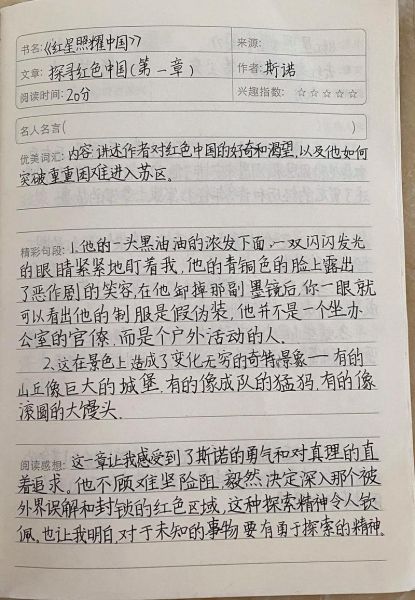 书名:《红星照耀中国》 来源:
文章: 探寻红色中国(第一章) 作者: 斯诺
阅读时间: 20分 兴趣指数: ☆☆☆☆☆
名人名言( )
优美词汇: 内容 讲述作者对红色中国的好奇和渴望,以及他如何
突破重重困难进入苏区。
精彩句段: 1.他的一头黑油油的浓发下面,一双闪闪发光
的眼睛紧紧地盯着我,他的青铜色的脸上露出
了恶作剧的笑容,在他卸掉那副墨镜后,你一眼就
可以看出他的制服是假伪装,他并不是一个坐办
公室的官僚,而是个户外活动的人.
2.这在景色上造成了变化无穷的奇特景象——有的
山丘像巨大的城堡,有的像成队的猛犸,有的像
滚圆的大馒头.
阅读感想: 这一章让我感受到了斯诺的勇气和对真理的直
着追求。他不顾难坚险阻,毅然决定深入那个被
外界误解和封锁的红色区域,这种探索精神令人钦
佩,也让我明白,对于未知的事物要有勇于探索的精神。